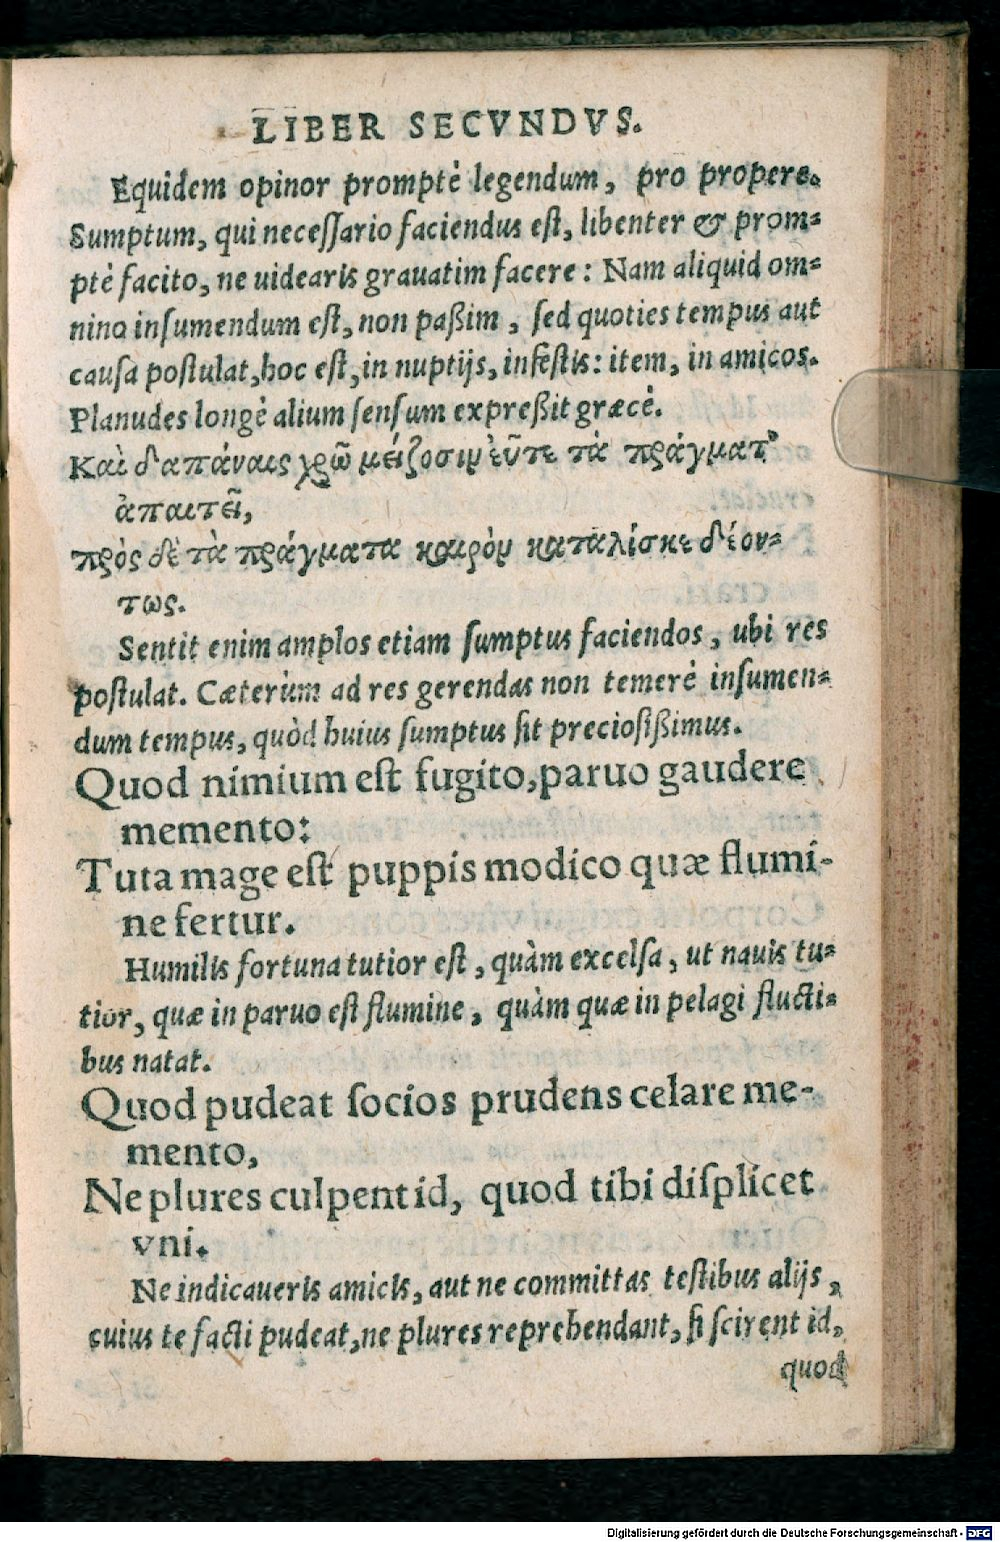 LIBER SECVNDVS.
Equidem opinor promptè legendum, pro propere.
Sumptum, qui necessario faciendus est, libenter & prom-
ptè facito, ne uidearis grauatim facere: Nam aliquid om-
nino insumendum est, non paßim, sed quoties tempus aut
causa postulat, hoc est, in nuptijs, in festis: item, in amicos.
Planudes longè alium sensum expreßit græcè.
Καὶ δαπάναις χρῶ μείζοσιν εὖτε τὰ πράγματ'
ἀπαιτεῖ,
πρὸς δὲ τὰ πράγματα καιρὸν κατάλίσκε δέον-
τως.
Sentit enim amplos etiam sumptus faciendos, ubi res
postulat. Cæterùm ad res gerendas non temerè insumen-
dum tempus, quòd huius sumptus sit preciosißimus.
Quod nimium est fugito, paruo gaudere
memento:
Tuta mage est puppis modico quæ flumi-
ne fertur.
Humilis fortuna tutior est, quàm excelsa, ut nauis tu-
tior, quæ in paruo est flumine, quàm quæ in pelagi flucti-
bus natat.
Quod pudeat socios prudens celare me-
mento,
Ne plures culpent id, quod tibi displicet
vni.
Ne indicaueris amicis, aut ne committas testibus alijs,
cuius te facti pudeat, ne plures reprehendant, si scirent id,
quod
Digitalisierung gefördert durch die Deutsche Forschungsgemeinschaft - DFG